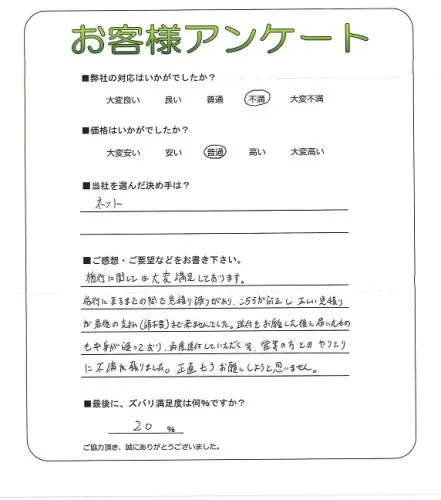 お客様アンケート
■弊社の対応はいかがでしたか?
大変良い 良い 普通 不満 大変不満
■価格はいかがでしたか?
大変安い 安い 普通 高い 大変高い
■当社を選んだ決め手は?
ネット
■ご感想・ご要望などをお書き下さい。
施行に関しては大変満足しております。
施行に至るまでの間で見積り誤りがあり、こちらが訂正し正しい見積り
が最後の支払(請求書)まで来ませんでした。送付をお願いした後に届いたもの
も中身が違っており、再度送付していただく等、営業の方とのやりとり
に不満が残りました。正直もうお願いしようと思いません。
■最後に、ズバリ満足度は何%ですか?
20 %
ご協力頂き、誠にありがとうございました。